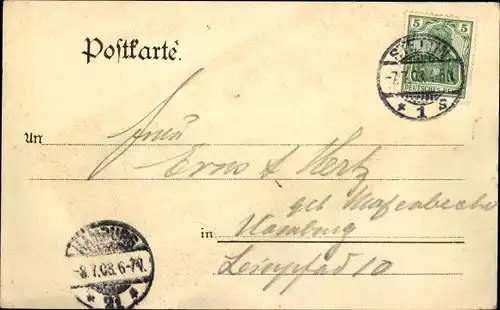 Postkarte.
5 5
DEUTSCHES
STETTIN
-7.7.03.
* 1 s
An
Frau
Ernst Hertz
geb
in Hamburg
Leinpfad 10
HAMBURG
-8.7.03.6-7V.
* 21 *